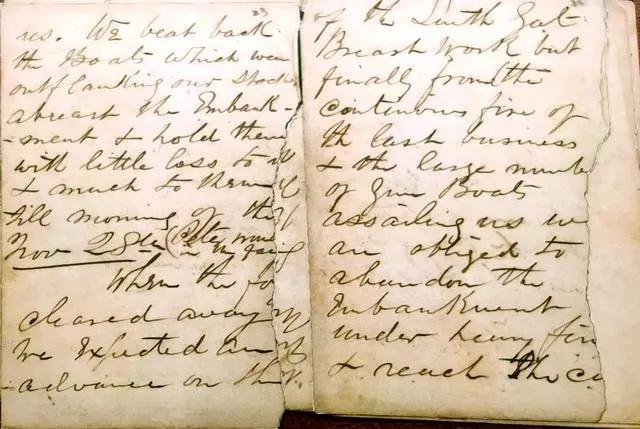 us. We beat back
the Boats which were
outflanking our Stock
abreast the Embank-
-ment & hold them
with little loss to
& much to them
till morning of the
Nov 28th (
When the fo
cleared away
We Expected an
-advance on the
of the South East
Breast work but
finally from the
continuous fire of
the last business
& the large numbe
of Gun Boats
assailing us we
are obliged to
abandon the
Embankment
under heavy fir
& reach the ca